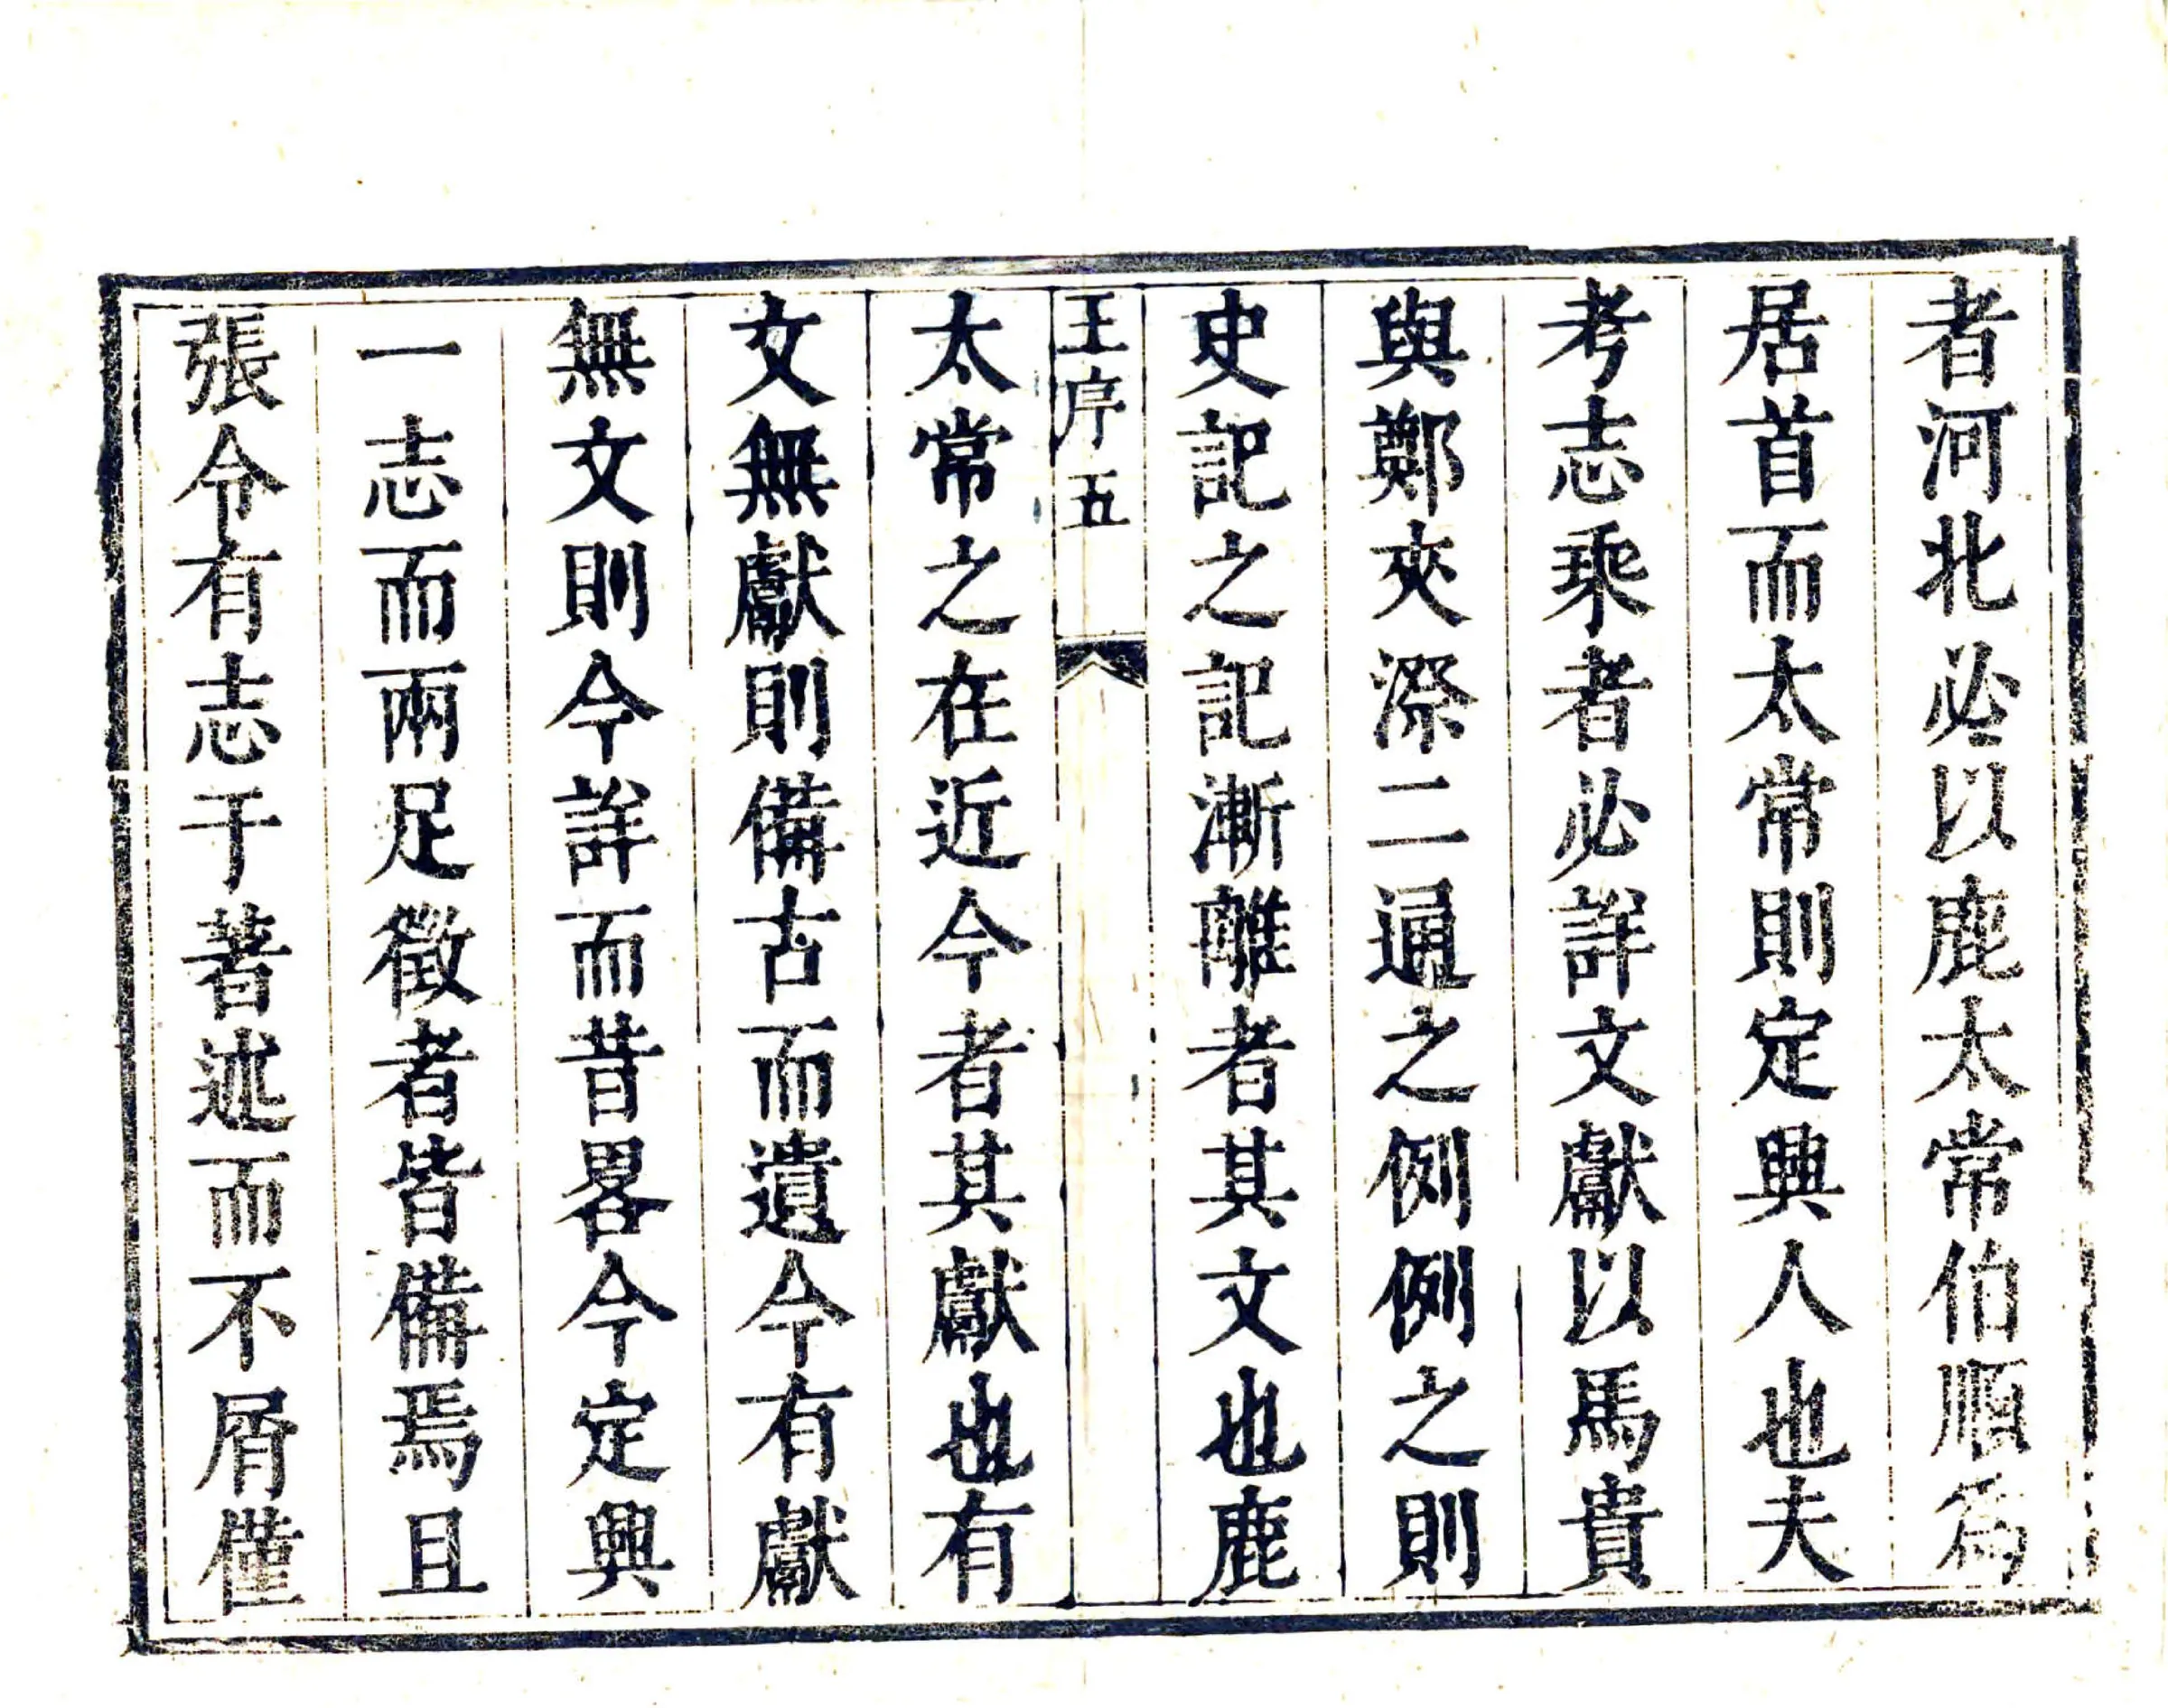 者河北必以鹿太常伯順為
居首而太常則定興人也夫
考志乘者必詳文獻以馬貴
與鄭夾漈二通之例例之則
史記之記漸離者其文也鹿
王序 五
太常之在近今者其獻也有
文無獻則備古而遺今有獻
無文則今詳而昔畧今定興
一志而兩足徵者皆備焉且
張令有志于著述而不屑僅